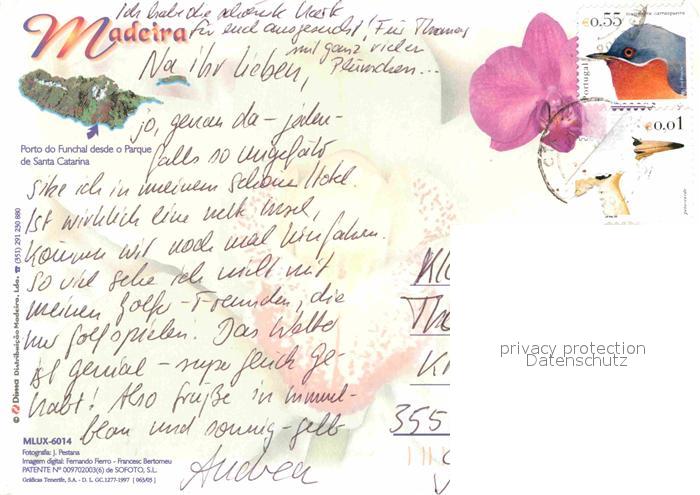 Ich habe die schönste Karte
für euch ausgesucht! Für Thomas
mit ganz vielen
Blümchen...
Madeira
Na ihr lieben,
€0,55
Portugal
€0,01
jo, genau da - jeden-
falls so ungefähr
Porto do Funchal desde o Parque
de Santa Catarina
sitze ich in meinem schönen Hotel.
Ist wirklich eine nette Insel,
können wir noch mal hinfahren.
So viel sehe ich nicht mit
meinen Golfer-Freunden, die
nur golfspielen. Das Wetter
ist genial - super Glück ge-
habt! Also Grüße in himmel-
blau und sonnig-gelb
Andrea
Th
355
privacy protection
Datenschutz
© Dima Distribuição Madeira, Lda. ☎ (351) 291 230 880
MLUX-6014
Fotografia: J. Pestana
Imagem digital: Fernando Fierro - Francesc Bertomeu
PATENTE Nº 009702003(6) de SOFOTO, S.L.
Gráficas Tenerife, S.A. - D. L. GC.1277-1997 [ 063/05 ]